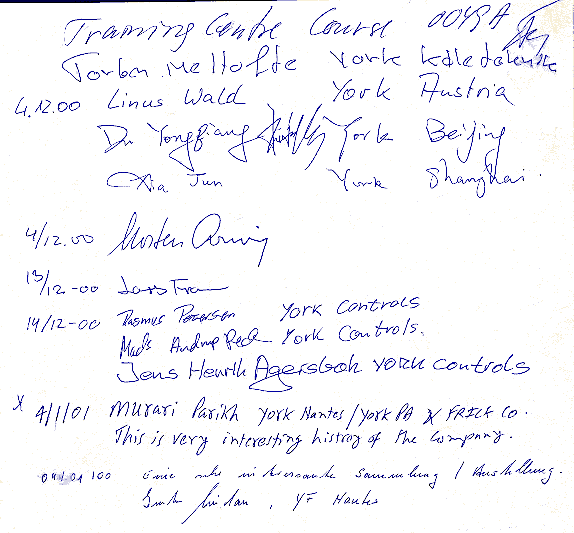 Training Centre Course 0049A
Torben Meltofte York
4.12.00 Linus Wald York Austria
Du Yongqiang York Beijing
Xia Jun York Shanghai.
4/12.00 Morten
13/12-00 Lars
14/12-00 Thomas York Controls
Mads York Controls.
Jens Henrik Agersbok YORK controls
X 4/1/01 Murari Parikh York Nantes / York PA X FRICK CO.
This is very interesting histroy of the Company.
04/01/00 Eine sehr interessante Sammlung / Ausstellung.
, YF Nantes